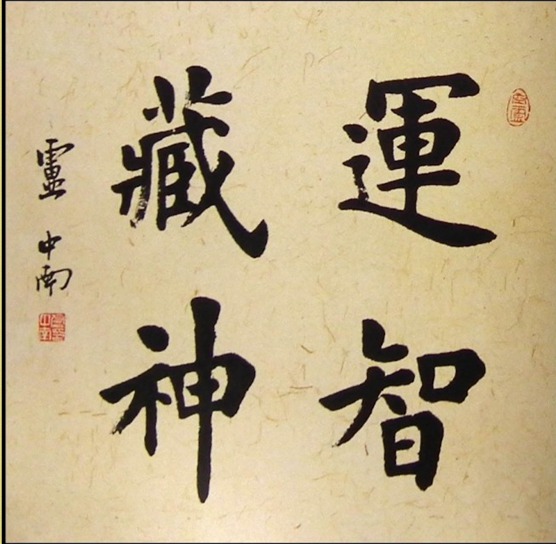 運智
藏神
盧中南